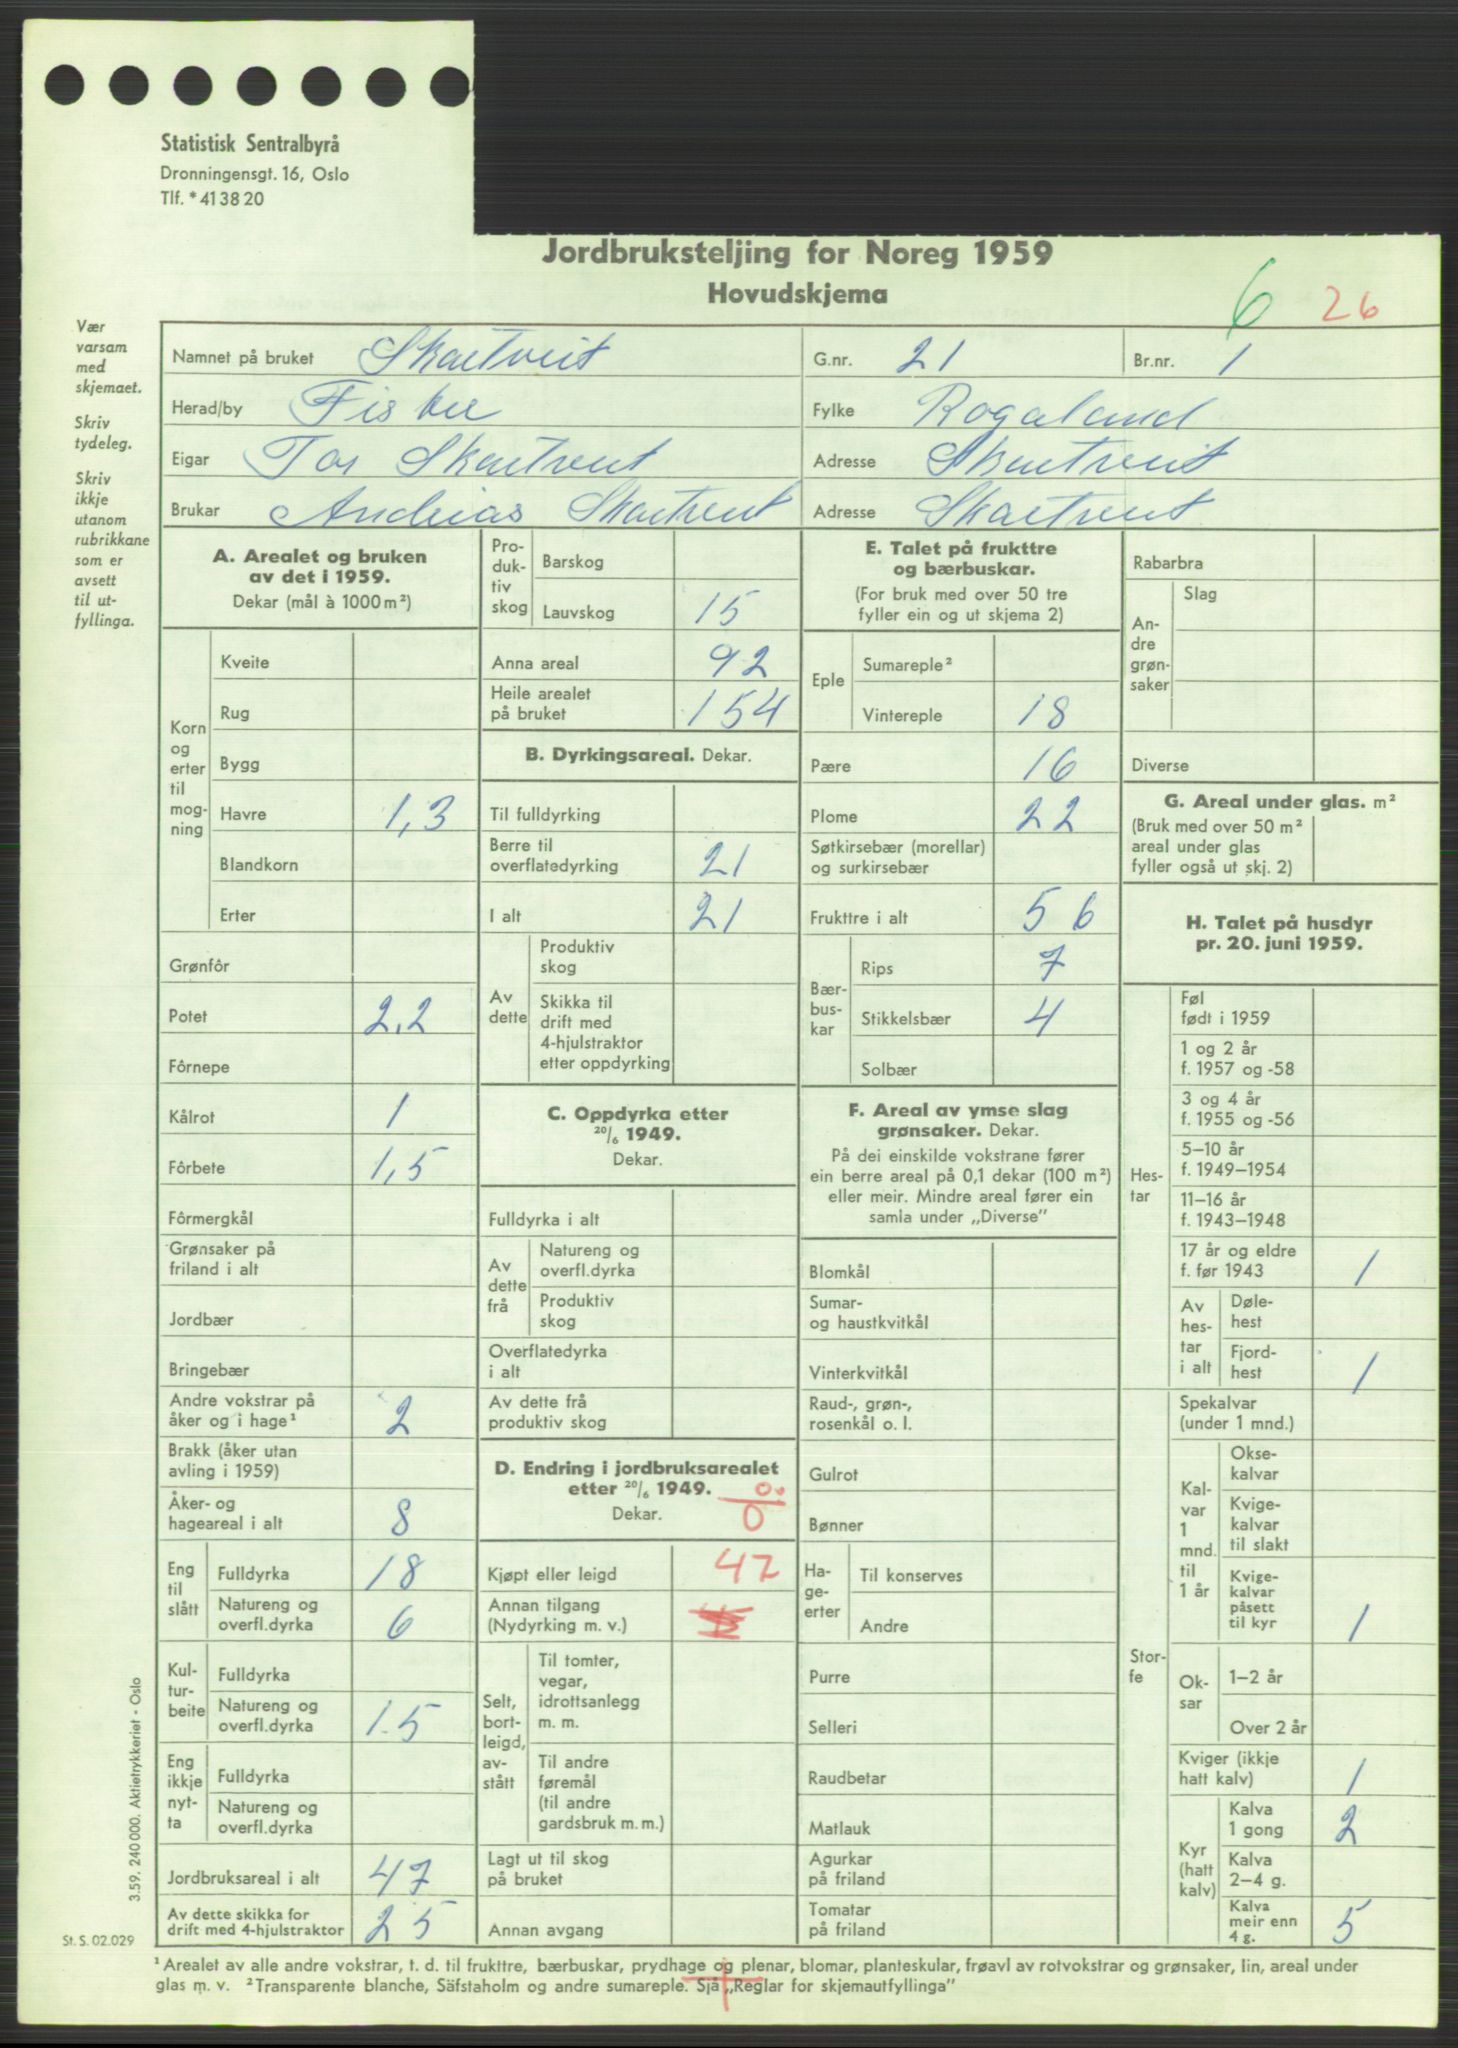 Statistisk Sentralbyrå
Dronningensgt. 16, Oslo
Tlf. * 41 38 20
Jordbruksteljing for Noreg 1959
Hovudskjema
6 26
Vær
varsam
med
skjemaet.
Skriv
tydeleg.
Skriv
ikkje
utanom
rubrikkane
som er
avsett
til ut-
fyllinga.
Namnet på bruket Skartveit G.nr. 21 Br.nr. 1
Herad/by Fister Fylke Rogaland
Eigar Tor Skartveit Adresse Skartveit
Brukar Andreas Skartveit Adresse Skartveit
A. Arealet og bruken
av det i 1959.
Dekar (mål à 1000 m²)
Korn
og
erter
til
mog-
ning
Kveite
Rug
Bygg
Havre 1,3
Blandkorn
Erter
Grønfôr
Potet 2,2
Fôrnepe
Kålrot 1
Fôrbete 1,5
Fôrmergkål
Grønsaker på
friland i alt
Jordbær
Bringebær
Andre vokstrar på
åker og i hage¹ 2
Brakk (åker utan
avling i 1959)
Åker- og
hageareal i alt 8
Eng
til
slått
Fulldyrka 18
Natureng og
overfl.dyrka 6
Kul-
tur-
beite
Fulldyrka
Natureng og
overfl.dyrka 15
Eng
ikkje
nyt-
ta
Fulldyrka
Natureng og
overfl.dyrka
Jordbruksareal i alt 47
Av dette skikka for
drift med 4-hjulstraktor 25
Pro-
duk-
tiv
skog
Barskog
Lauvskog 15
Anna areal 92
Heile arealet
på bruket 154
B. Dyrkingsareal. Dekar.
Til fulldyrking
Berre til
overflatedyrking 21
I alt 21
Av
dette
Produktiv
skog
Skikka til
drift med
4-hjulstraktor
etter oppdyrking
C. Oppdyrka etter
20/6 1949.
Dekar.
Fulldyrka i alt
Av
dette
frå
Natureng og
overfl.dyrka
Produktiv
skog
Overflatedyrka
i alt
Av dette frå
produktiv skog
D. Endring i jordbruksarealet
etter 20/6 1949.
Dekar.
0
0
Kjøpt eller leigd 47
Annan tilgang
(Nydyrking m. v.)
Selt,
bort-
leigd,
av-
stått
Til tomter,
vegar,
idrottsanlegg
m. m.
Til andre
føremål
(til andre
gardsbruk m. m.)
Lagt ut til skog
på bruket
Annan avgang
E. Talet på frukttre
og bærbuskar.
(For bruk med over 50 tre
fyller ein og ut skjema 2)
Eple
Sumareple²
Vintereple 18
Pære 16
Plome 22
Søtkirsebær (morellar)
og surkirsebær
Frukttre i alt 56
Bær-
bus-
kar
Rips 7
Stikkelsbær 4
Solbær
F. Areal av ymse slag
grønsaker. Dekar.
På dei einskilde vokstrane fører
ein berre areal på 0,1 dekar (100 m²)
eller meir. Mindre areal fører ein
samla under „Diverse”
Blomkål
Sumar-
og haustkvitkål
Vinterkvitkål
Raud-, grøn-,
rosenkål o. l.
Gulrot
Bønner
Ha-
ge-
erter
Til konserves
Andre
Purre
Selleri
Raudbetar
Matlauk
Agurkar
på friland
Tomatar
på friland
Rabarbra
An-
dre
grøn-
saker
Slag
Diverse
G. Areal under glas. m²
(Bruk med over 50 m²
areal under glas
fyller også ut skj. 2)
H. Talet på husdyr
pr. 20. juni 1959.
Hes-
tar
Føl
født i 1959
1 og 2 år
f. 1957 og -58
3 og 4 år
f. 1955 og -56
5–10 år
f. 1949–1954
11–16 år
f. 1943–1948
17 år og eldre
f. før 1943 1
Av
hes-
tar
i alt
Døle-
hest
Fjord-
hest 1
Stor-
fe
Spekalvar
(under 1 mnd.)
Kal-
var
1
mnd.
til
1 år
Okse-
kalvar
Kvige-
kalvar
til slakt
Kvige-
kalvar
påsett
til kyr 1
Ok-
sar
1–2 år
Over 2 år
Kviger (ikkje
hatt kalv) 1
Kyr
(hatt
kalv)
Kalva
1 gong 2
Kalva
2–4 g.
Kalva
meir enn
4 g. 5
3.59. 240 000. Aktietrykkeriet - Oslo
St. S. 02.029
¹ Arealet av alle andre vokstrar, t. d. til frukttre, bærbuskar, prydhage og plenar, blomar, planteskular, frøavl av rotvokstrar og grønsaker, lin, areal under
glas m. v. ² Transparente blanche, Säfstaholm og andre sumareple. Sjå „Reglar for skjemautfyllinga”